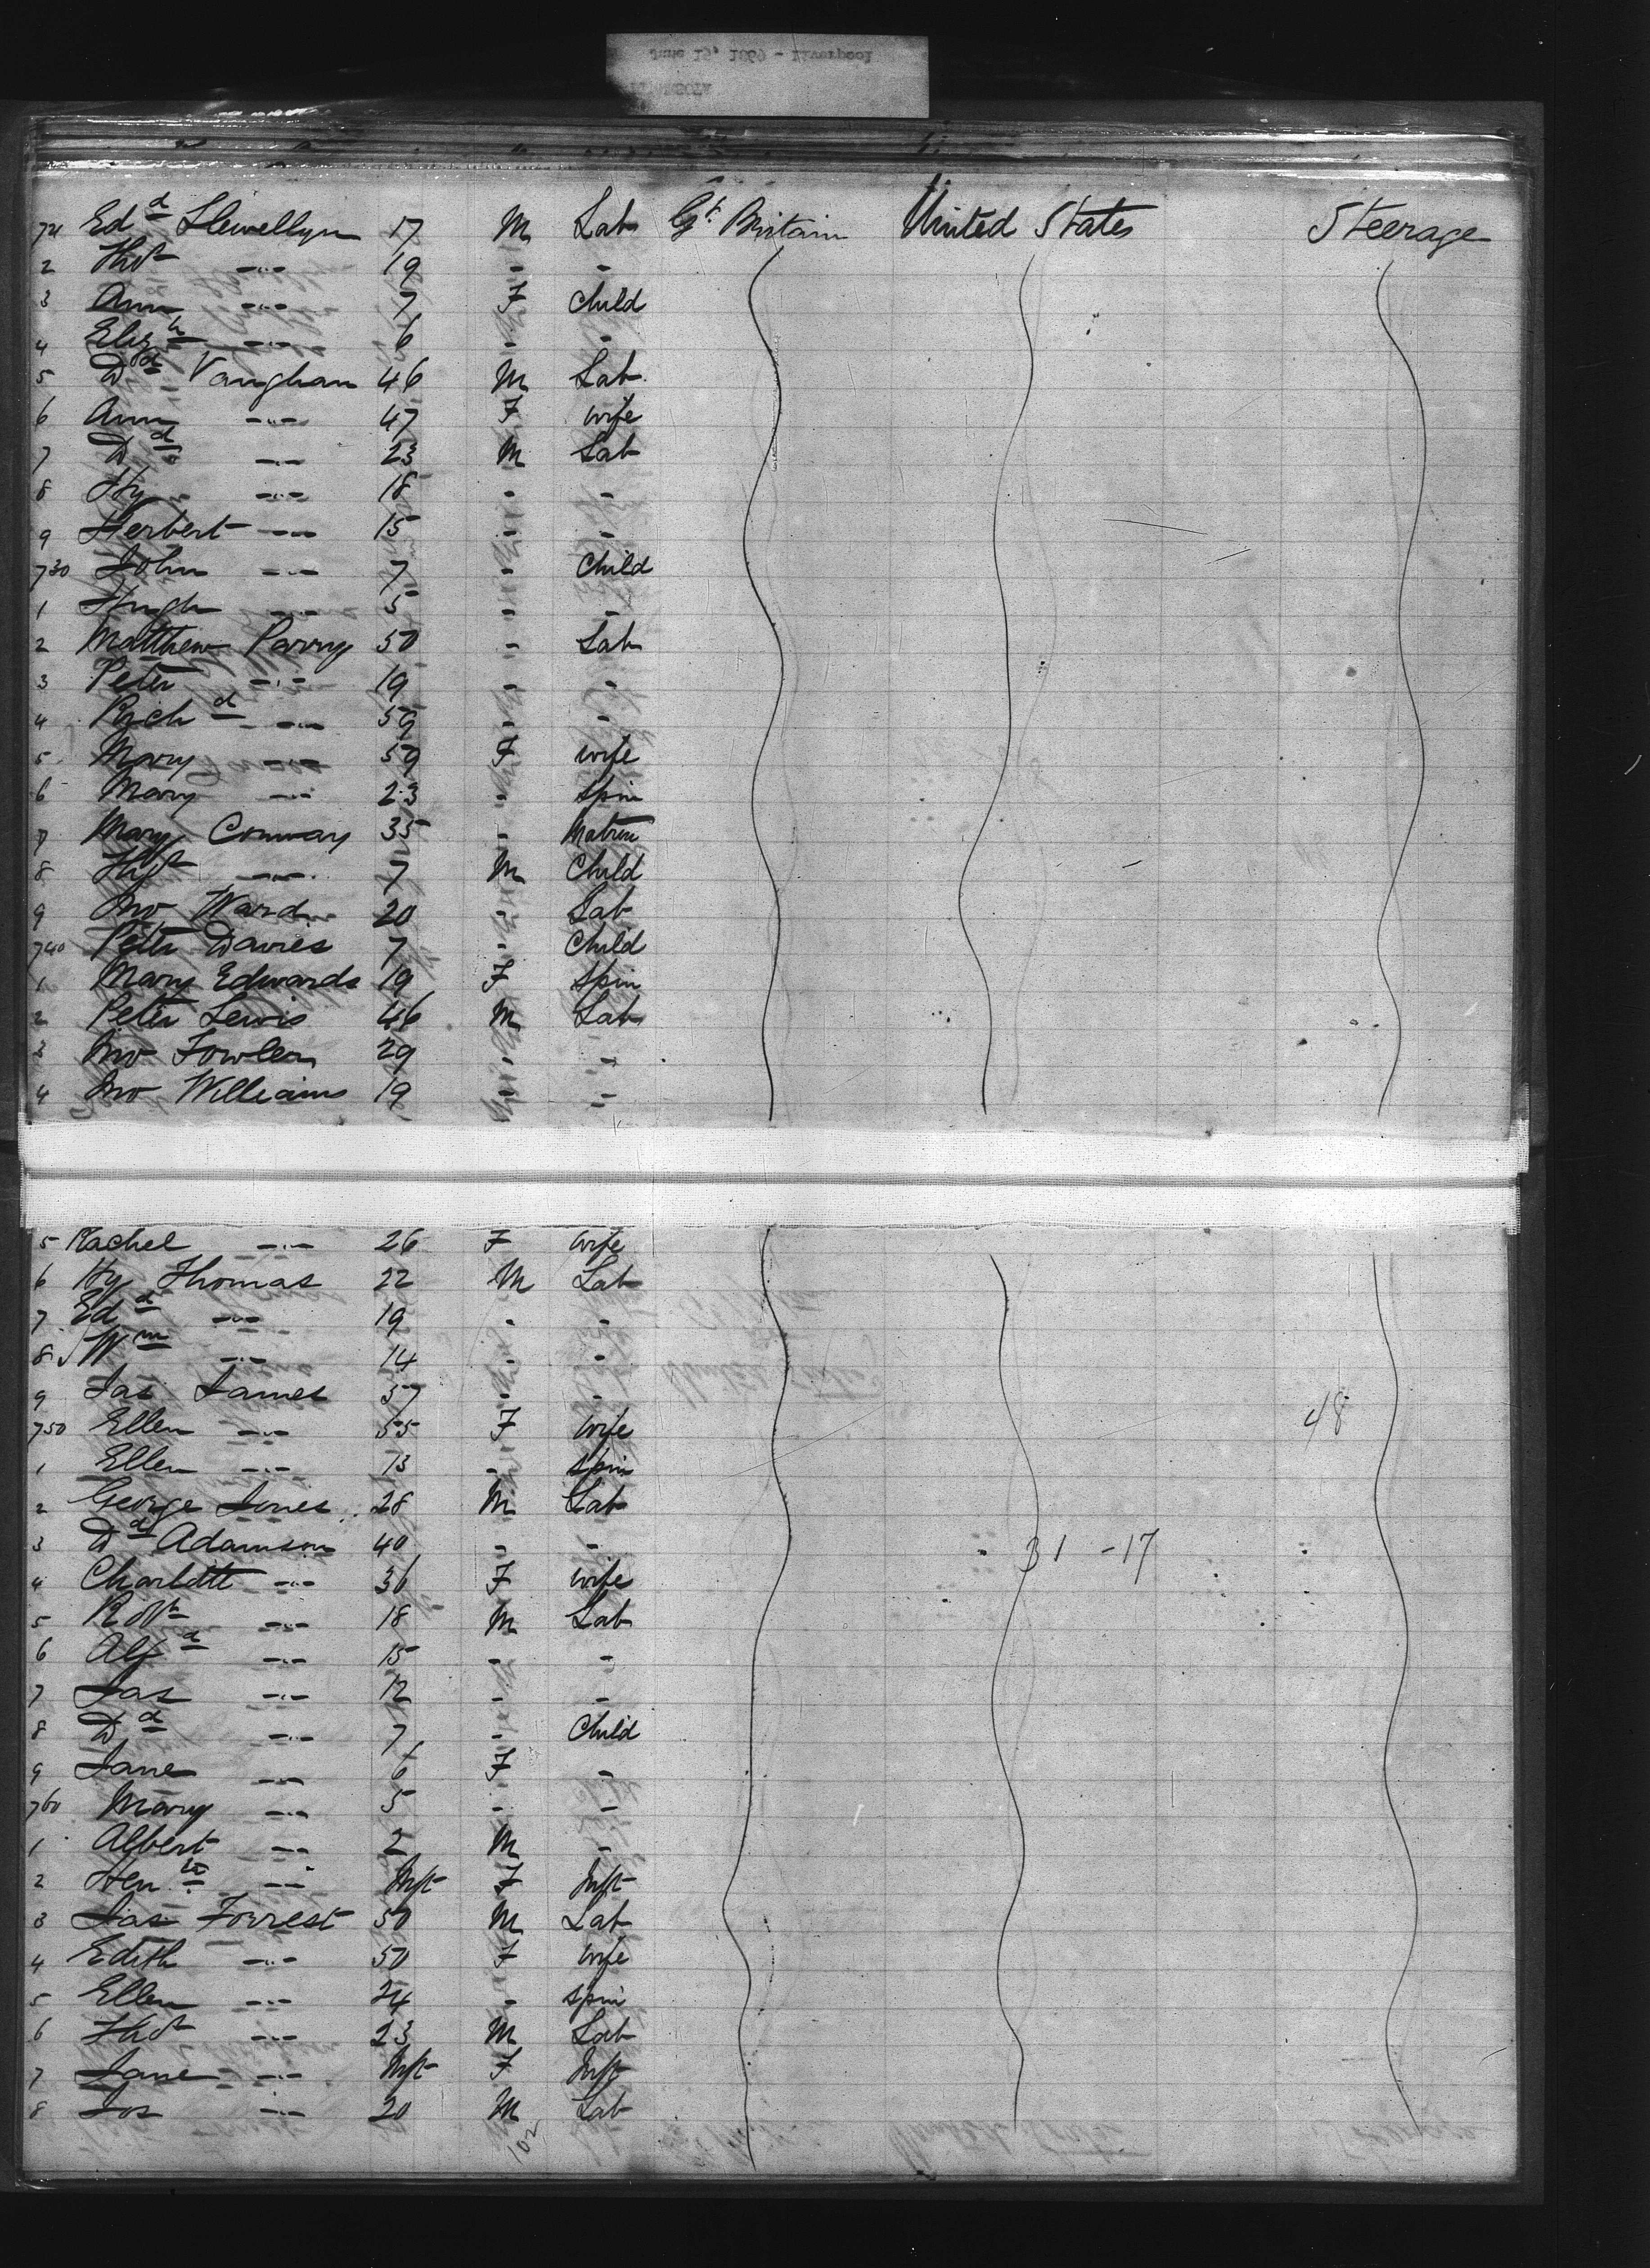 June 15, 1869 - Liverpool
721 Edd Llewellyn 17 M Lab Gt Britain United States Steerage
2 Thos -"- 19 - -
3 Ann -"- 7 F Child
4 Elizh -"- 6 - -
5 Dd Vaughan 46 M Lab
6 Ann -"- 47 F Wife
7 Dd -"- 23 M Lab
8 Hy -"- 18 - -
9 Herbert -"- 15 - -
730 John -"- 7 - Child
1 Hugh -"- 5 - -
2 Matthew Parry 50 - Lab
3 Peter -"- 19 - -
4 Richd -"- 59 - -
5 Mary -"- 59 F Wife
6 Mary -"- 23 - Spin
7 Mary Conway 35 - Matron
8 Thos -"- 7 M Child
9 Jno Ward 20 - Lab
740 Peter Davies 7 - Child
1 Mary Edwards 19 F Spin
2 Peter Lewis 46 M Lab
3 Jno Fowler 29 - -
4 Jno Williams 19 - -
5 Rachel -"- 26 F Wife
6 Hy Thomas 22 M Lab
7 Edd -"- 19 - -
8 Wm -"- 14 - -
9 Jas James 57 - -
750 Ellen -"- 55 F Wife 48
1 Ellen -"- 13 - Spin
2 George Jones 28 M Lab
3 Dd Adamson 40 - - 31 -17
4 Charlotte -"- 36 F Wife
5 Robt -"- 18 M Lab
6 Alfd -"- 15 - -
7 Jas -"- 12 - -
8 Dd -"- 7 - Child
9 Jane -"- 6 F -
760 Mary -"- 5 - -
1 Albert -"- 2 M -
2 Hen -"- Inft F Inft
3 Jas Forrest 50 M Lab
4 Edith -"- 50 F Wife
5 Ellen -"- 24 - Spin
6 Thos -"- 23 M Lab
7 Jane -"- Inft F Inft
8 Jos -"- 20 M Lab
102